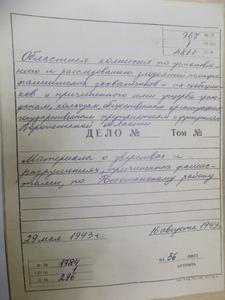 767
1
Областная комиссия по установ-
лению и расследованию злодеяний немецко-
фашистских захватчиков и их сообщни-
ков и причиненного ими ущерба граж-
данам, колхозам, общественным организациям,
государственным предприятиям и учреждениям
Воронежской области
ДЕЛО № Том №
Материалы о зверствах и
разрушениях, причиненных фашис-
тами, по
району
29 мая 1943 г. 16 августа 1943 г.
на 36 лист
хранить
Ф. № 1784
Оп. № 1
Д. № 296